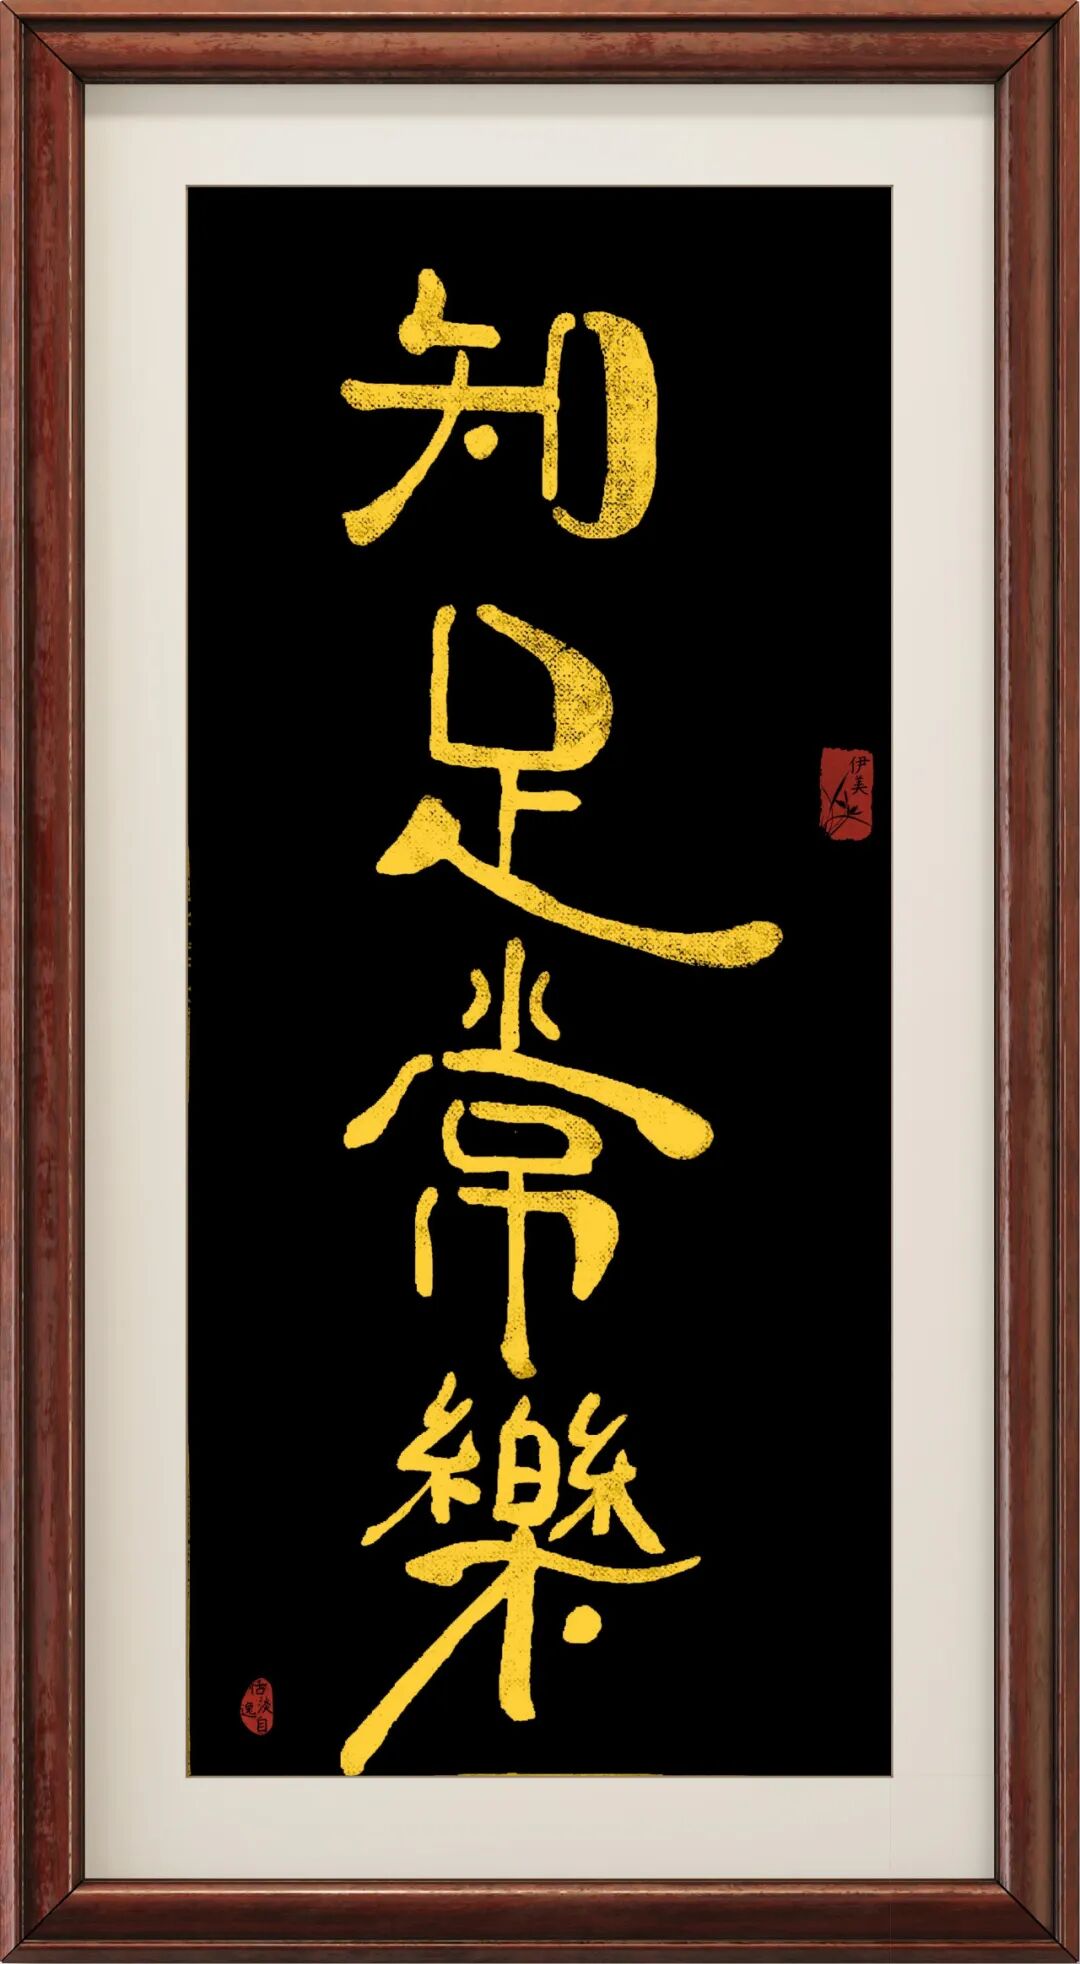 知足常樂
伊美
恬淡自逸